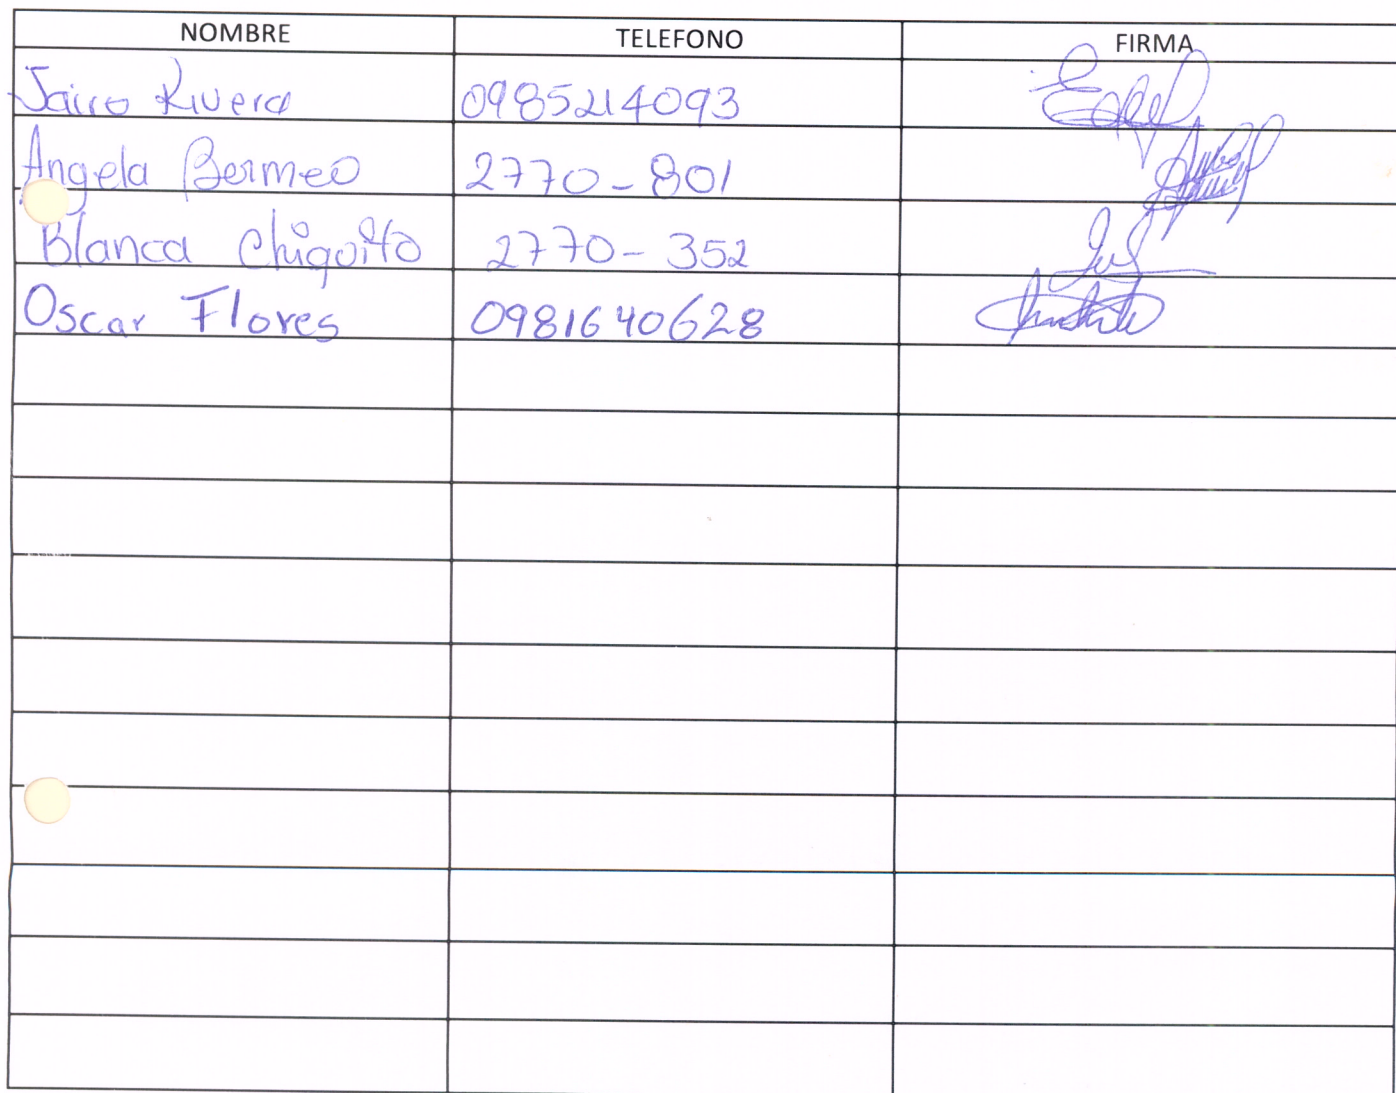 NOMBRE TELEFONO FIRMA
Jairo Rivera 0985214093
Angela Bermeo 2770-801
Blanca Chiquito 2770-352
Oscar Flores 0981640628